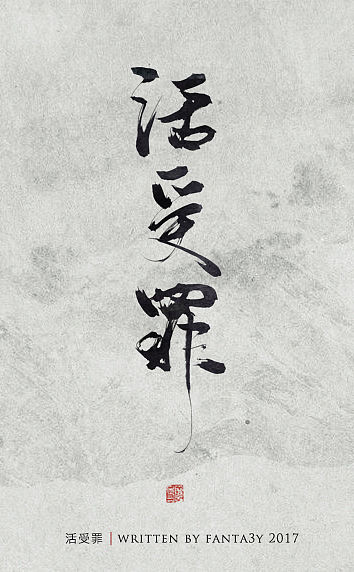 活受罪
活受罪 | WRITTEN BY FANTA3Y 2017